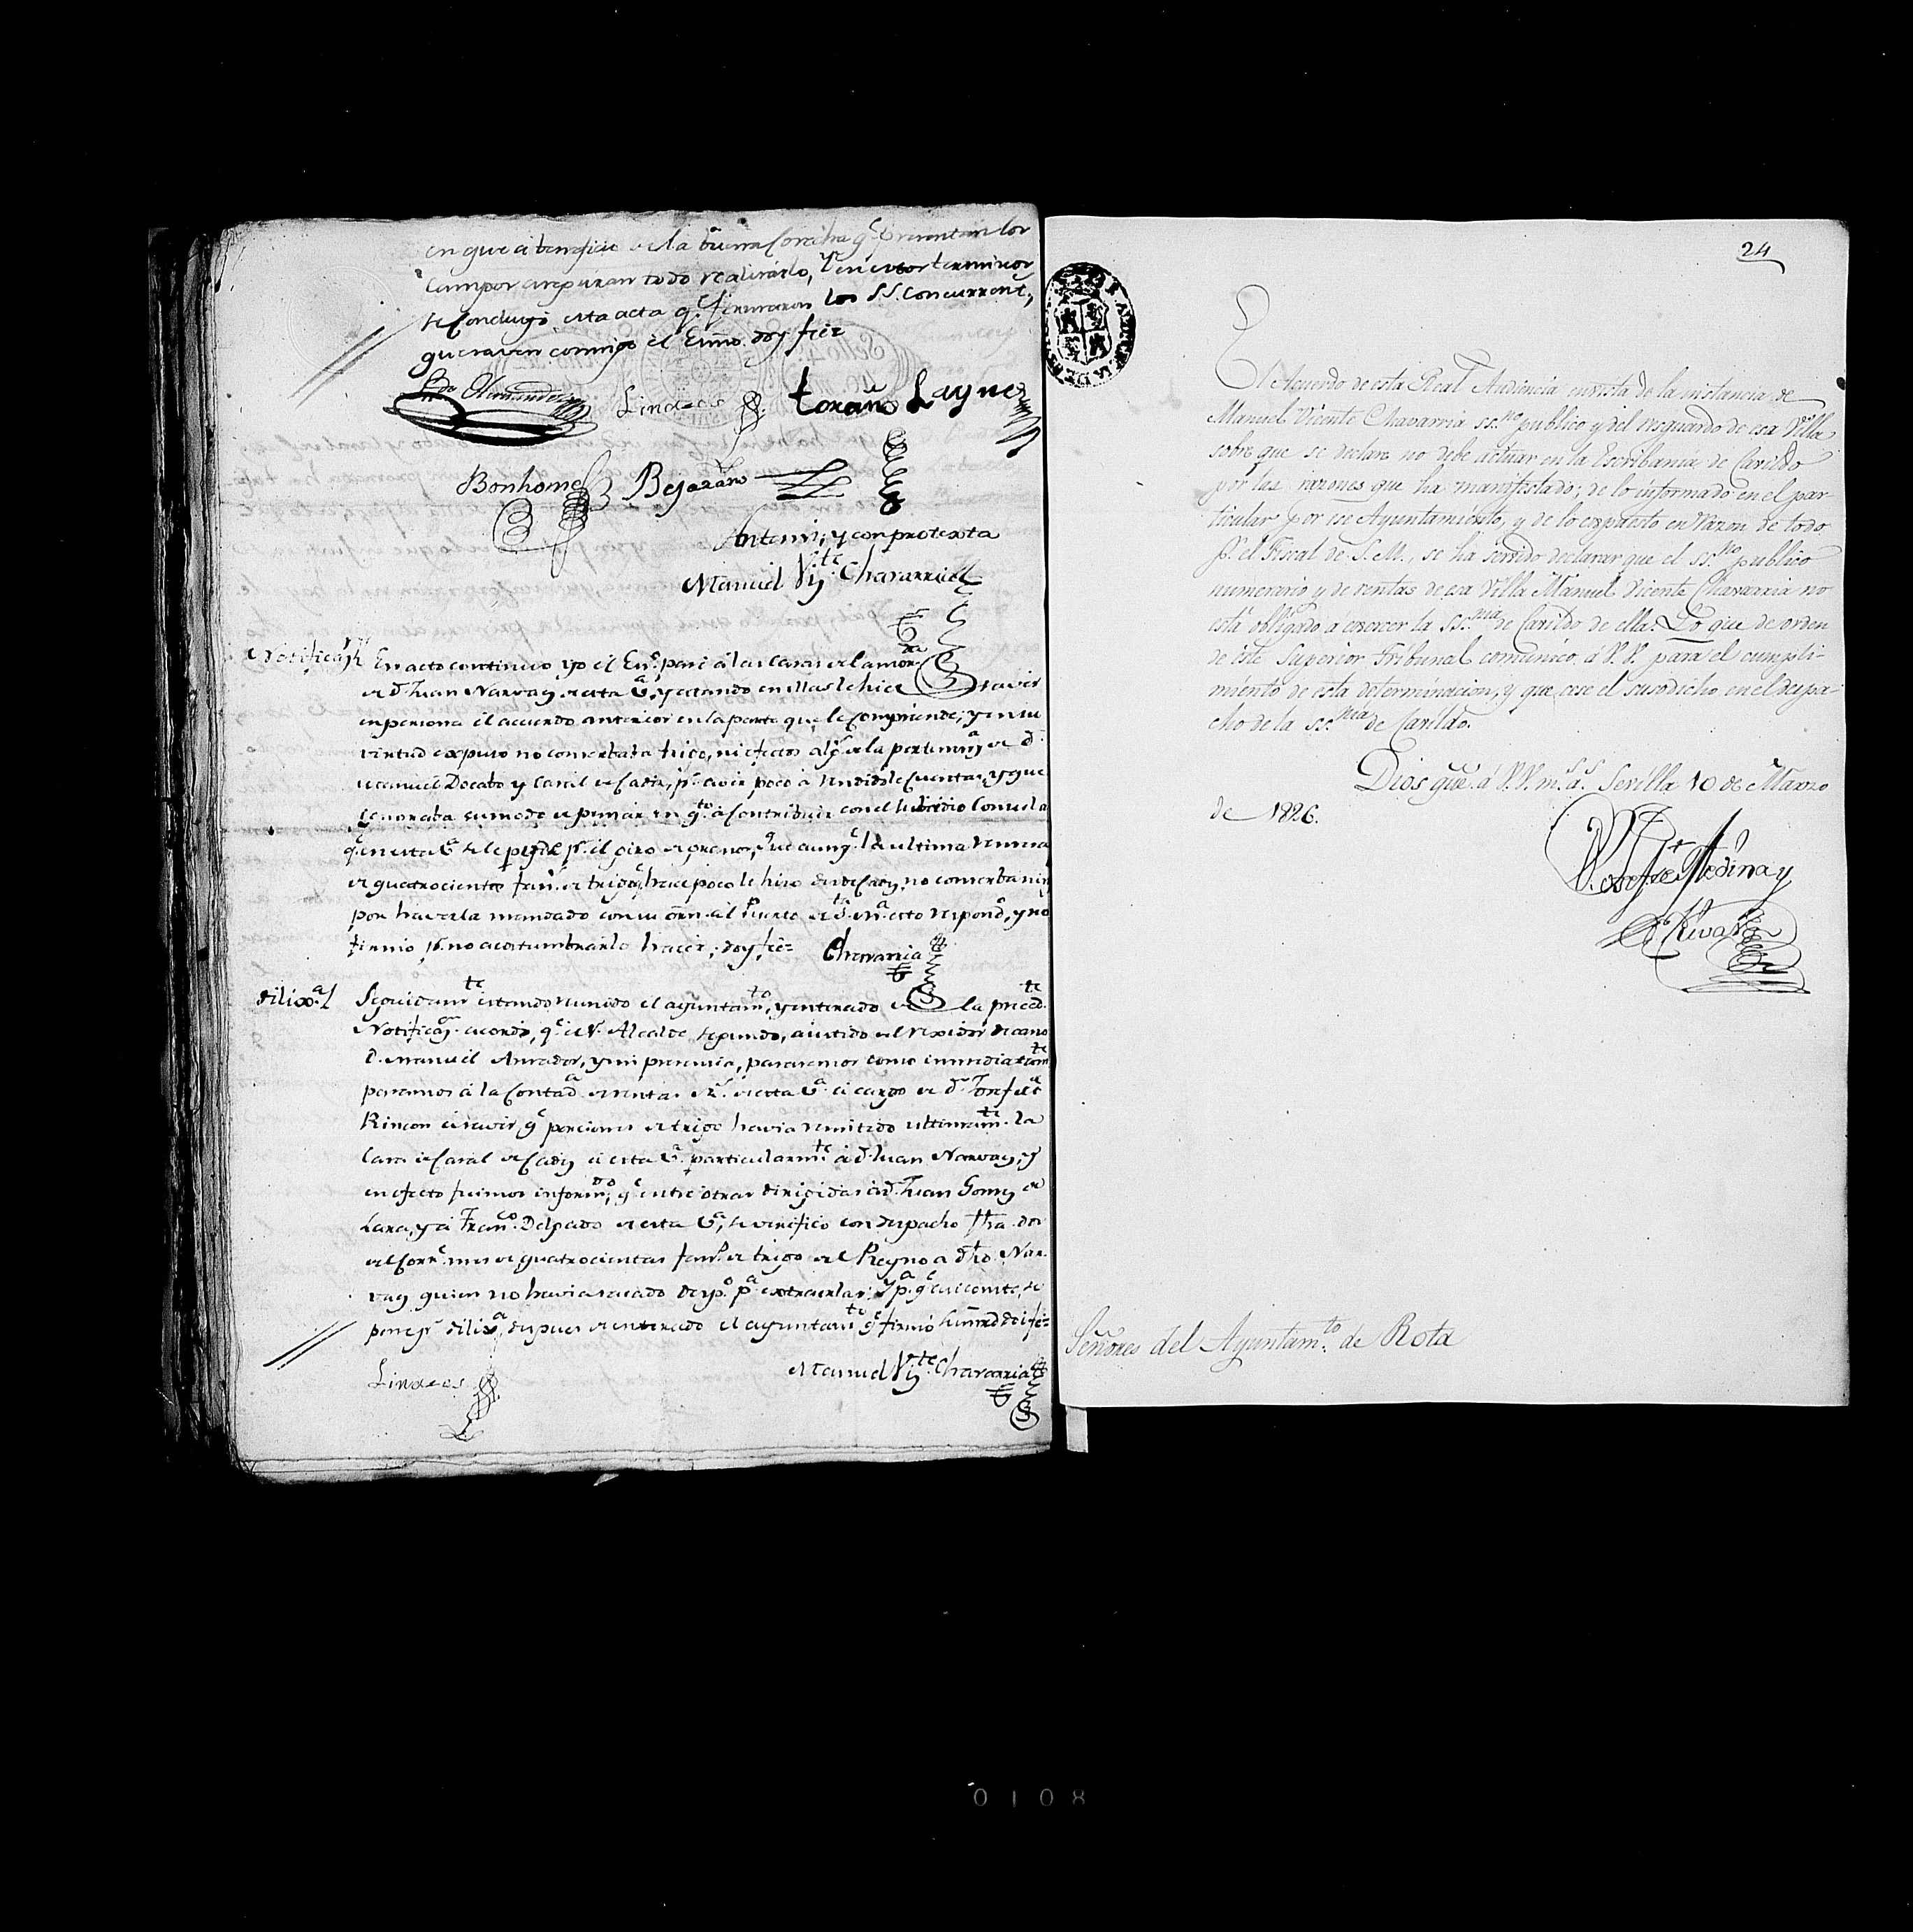 en que a beneficio de la buena Cosecha q.e presentan los
campos aseguran todo realizarlo, Y en estos terminos
se Concluyó esta acta q.e firmaron los S.S. Concurrent.s
que saven conmigo el Essno. doy fee=
Lindeos Torano Laynez
Bonhome Bejarano
Antemi; y con protexta
Manuel V.te Chavarria
Notificaz.n
En acto continuo yo el En.o pasé á las casas de la mora.da
de d.n Juan Narvaez de esta V.a, y estando en ellas le hice saver
en persona el acuerdo anterior en la parte que le comprende; y en su
virtud expuso no conserbaba trigo, ni efectos alg.s de la pertenenz.a de d.n
Manuel Docabo y Casal de Cadiz, p.r aver poco á rendidole Cuentas, y que
ignoraba su modo de pensar en q.to á Contribuir con el subsidio Consular
q.e en esta V.a se le p.r el giro de granos, q.e aunq.e la ultima remesa
de quatrocientas fan.s de trigo, hace poco le hizo desde Cadiz, no conserbaba ning.a
por haverla mandado con su orn. al Puerto de S.ta M.a esto respond.o, y no
firmó p.r no acostumbrarlo hacer, doy fee=
Chavarria
dilix.a
Seguidam.te estando reunido el ayuntam.to, y enterado de la preced.te
Notificaz.n acordó, q.e el S.r Alcalde segundo, asistido del rexidor decano
D. Manuel Amador, y mi presencia, pasaremos como inmediatam.te
pasamos á la Contad.a de rentas R.s de esta V.a á cargo de d.n Josef de
Rincon á saver q.e porciones de trigo havia remitido ultimam.te la
Casa de Casal de Cadiz á esta V.a particularm.te á d. Juan Narvaez, y
en efecto fuimos inform.dos, q.e entre otras dirigidas á d. Juan Gomez de
Lara, y á Fran.co Delgado de esta V.a, se verificó con despacho fha. dos
del Corr.e mes de quatrocientas fan.s de trigo del Reyno a dho. Nar-
vaez quien no havia sacado desp.o p.a extraerlas; Y p.a q.e asi conste, se
pone p.r dilix.a, despues de enterado el ayuntam.to q.e firmó su mrd. doi fee=
Lindeos
Manuel V.te Chavarria
24
El Acuerdo de esta Real Audiencia en vista de la instancia de
Manuel Vicente Chavarria ss.no publico y del resguardo de esa Villa
sobre que se declare no debe actuar en la Escribanía de Cavildo
por las razones que ha manifestado; de lo informado en el par-
ticular por ese Ayuntamiento, y de lo expuesto en razon de todo
p.r el Fiscal de S. M., se ha servido declarar que el ss.no publico
numerario y de rentas de esa Villa Manuel Vicente Chavarria no
está obligado á exercer la ss.nia de Cavildo de ella. Lo que de orden
de este Superior Tribunal comunico á V.V. para el cumpli-
miento de esta determinacion, y que cese el susodicho en el despa-
cho de la ss.nia de Cavildo.
Dios gue. á V.V. m.s a.s Sevilla 10 de Marzo
de 1826.
Josef de Medina y
Rivas
Señores del Ayuntam.to de Rota
0108